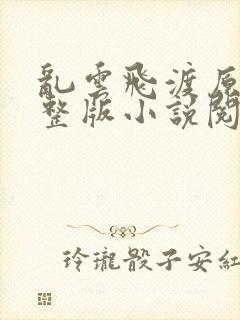 亂雲飛渡原
整版小説閱
玲瓏骰子安紅